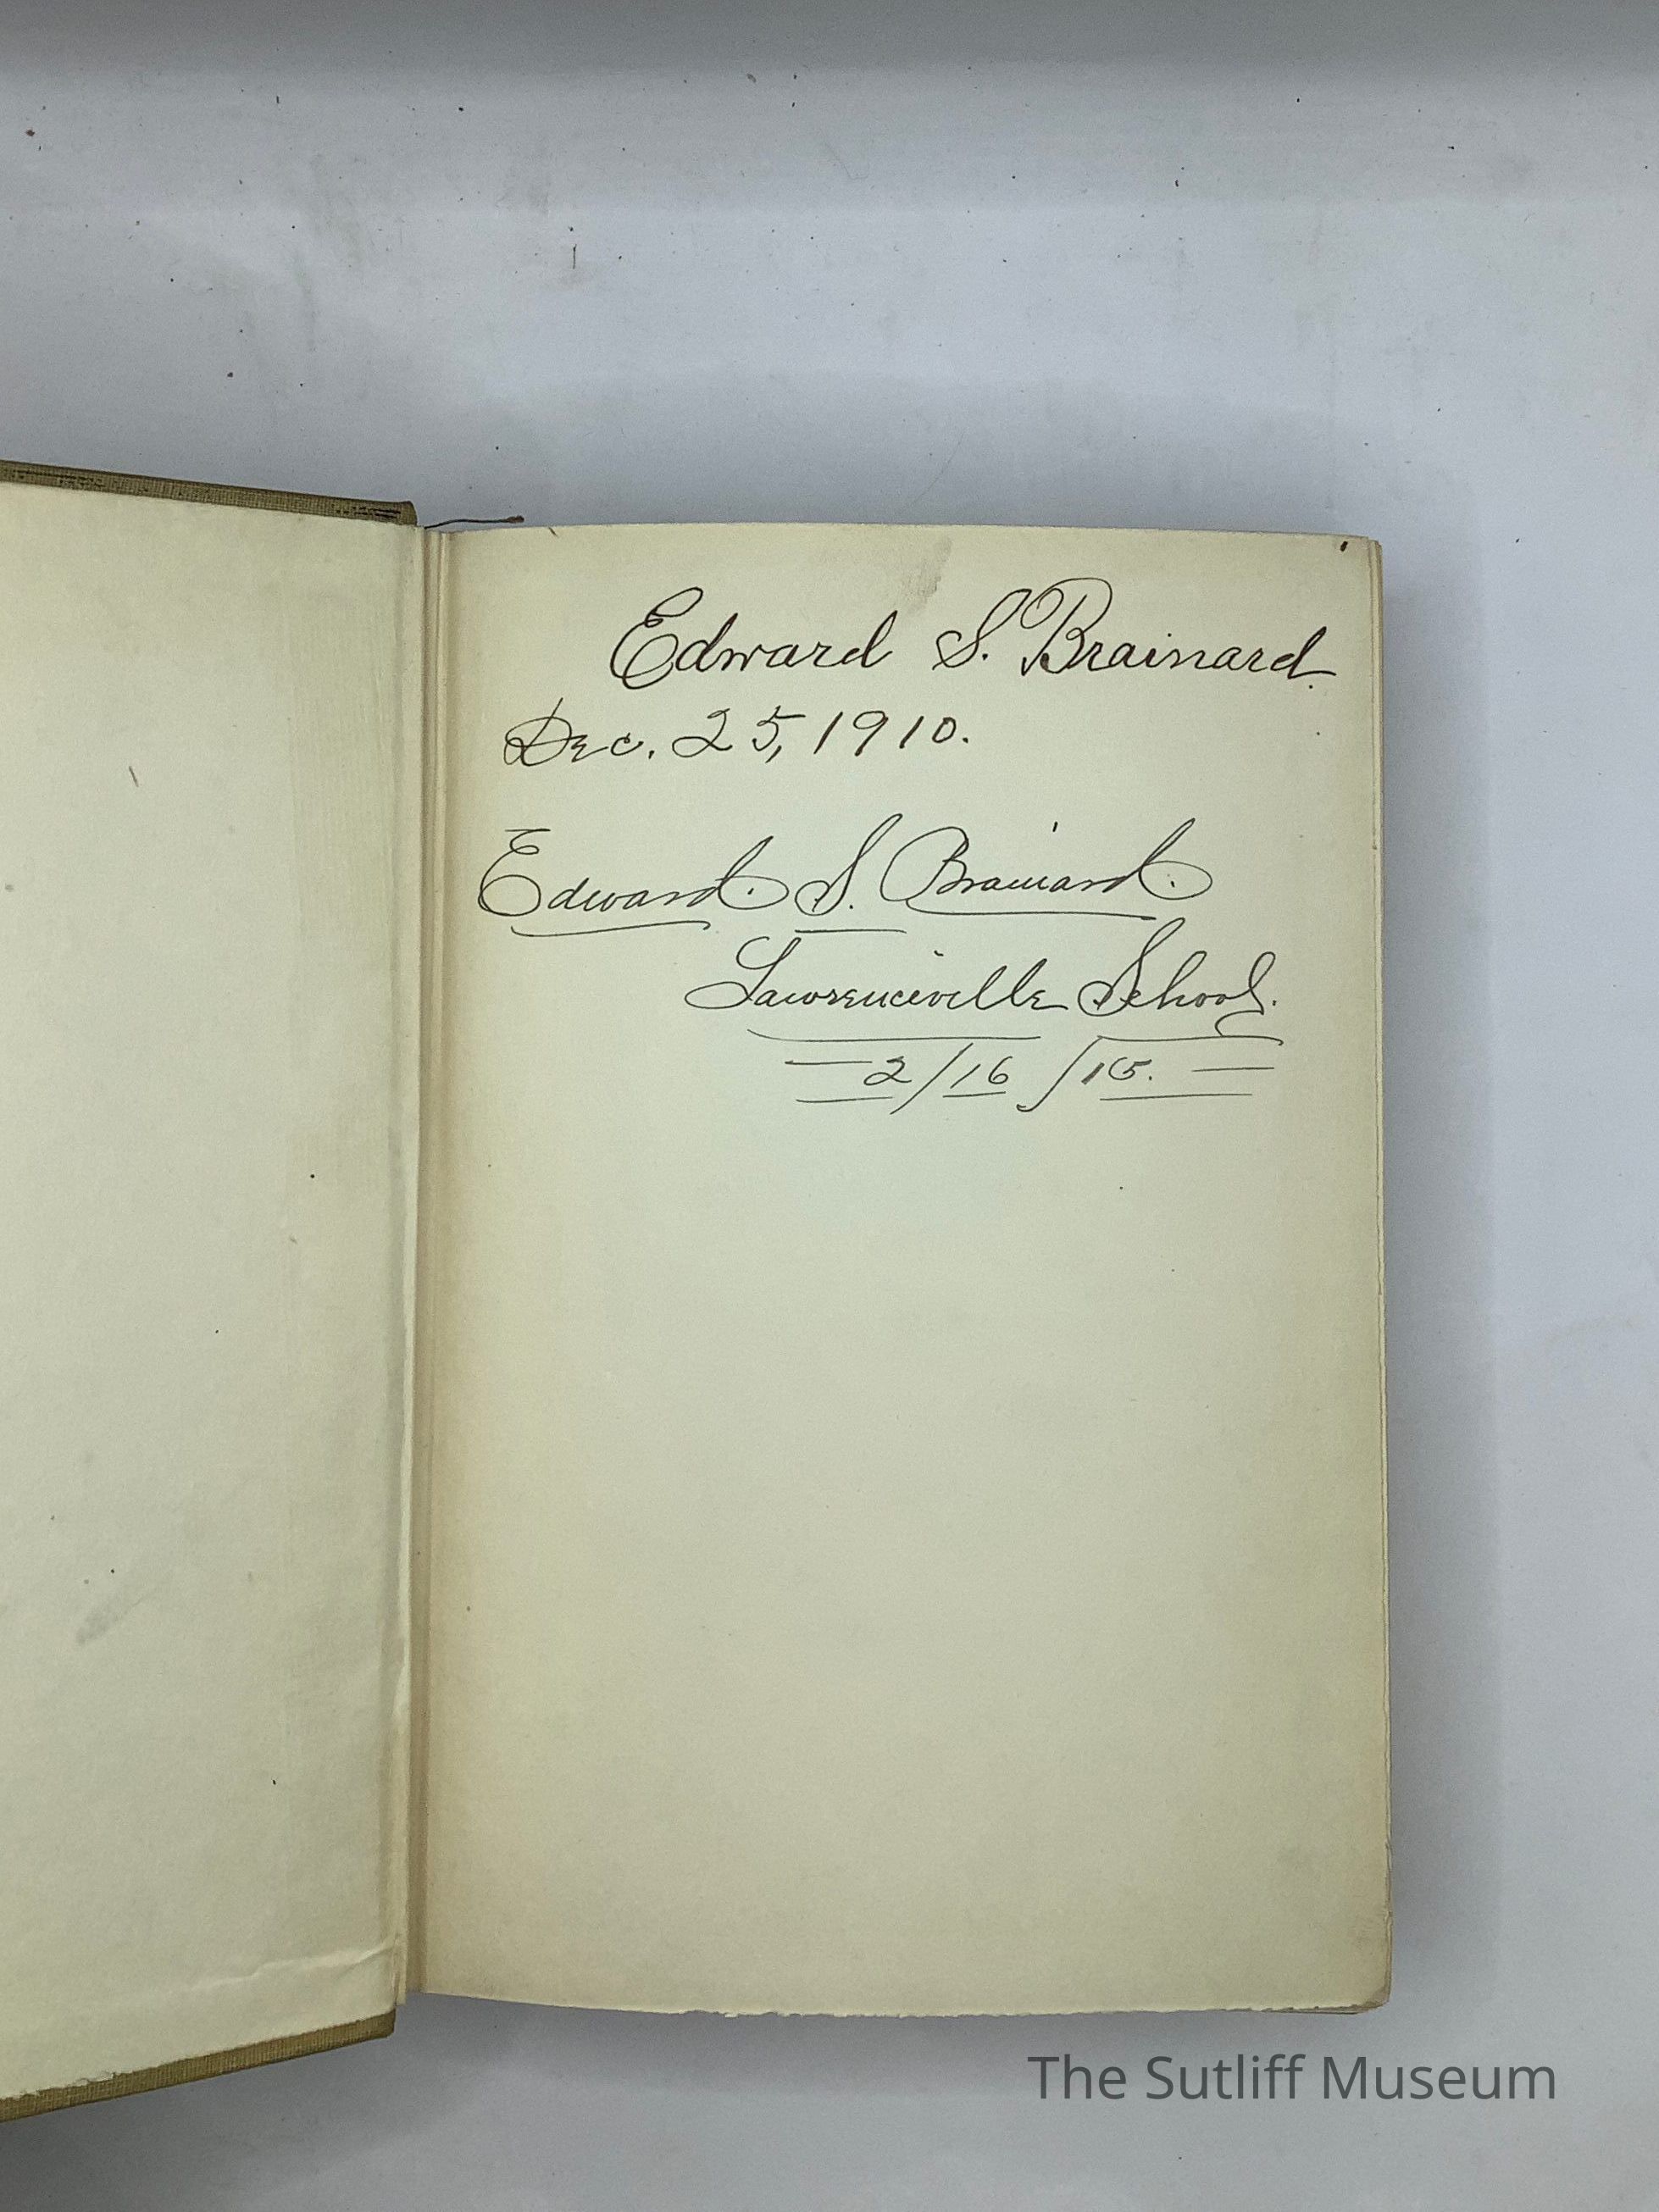 Edward S. Brainard.
Dec. 25, 1910.
Edward. S. Brainard.
Lawrenceville School.
2/16/15.
The Sutliff Museum